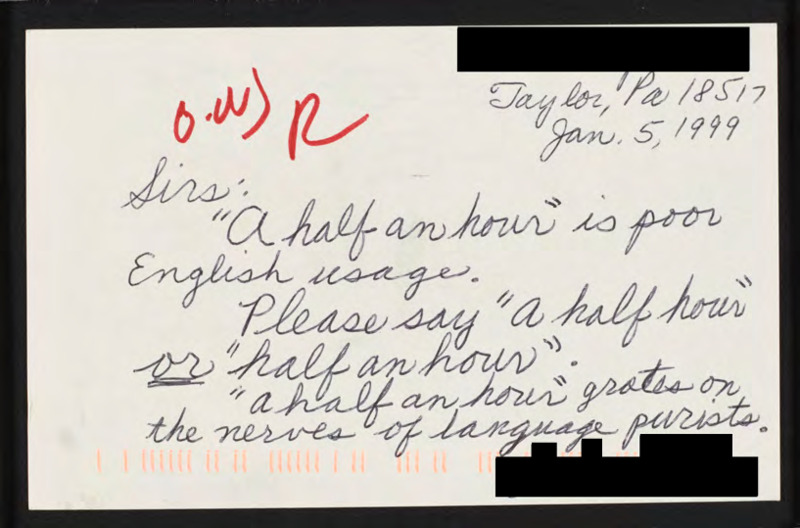 Taylor, Pa 18517
Jan. 5, 1999
O.W) R
Sirs:
"A half an hour" is poor
English usage.
Please say "a half hour"
or "half an hour".
"a half an hour" grates on
the nerves of language purists.